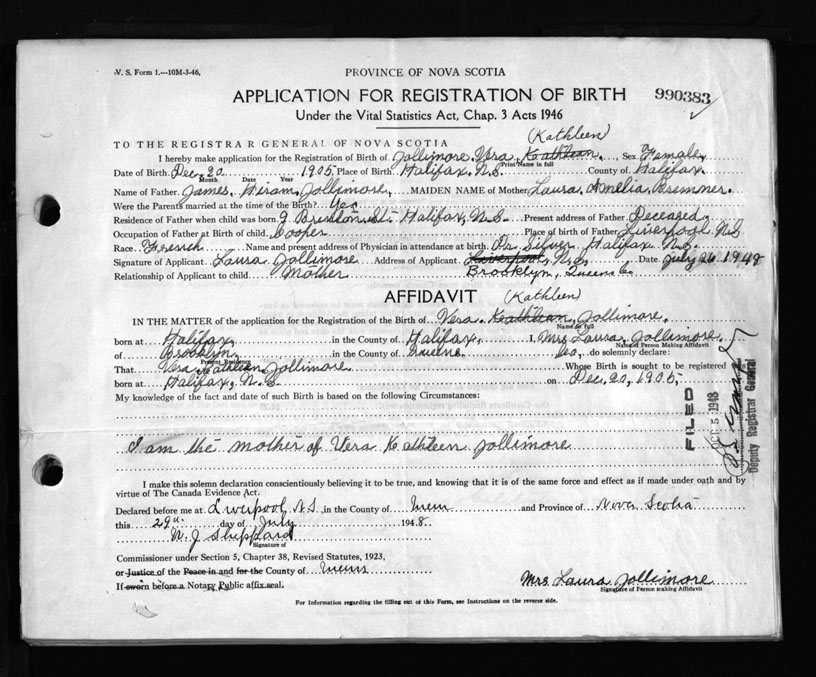 V. S. Form 1.—10M-3-46,
PROVINCE OF NOVA SCOTIA
APPLICATION FOR REGISTRATION OF BIRTH 990383
Under the Vital Statistics Act, Chap. 3 Acts 1946
(Kathleen)
TO THE REGISTRAR GENERAL OF NOVA SCOTIA
I hereby make application for the Registration of Birth of Jollimore. Vera. Keathleen. Sex Female.
Print Name in full
Date of Birth. Dec. 20 1905. Place of Birth. Halifax. N.S. County of Halifax.
Month Date Year
Name of Father. James. Hiram. Jollimore, MAIDEN NAME of Mother. Laura. Amelia Bremner.
Were the Parents married at the time of the Birth? Yes
Residence of Father when child was born. 9 Brenton St. Halifax, N.S. Present address of Father. Deceased.
Occupation of Father at Birth of child. Cooper Place of birth of Father. Liverpool N.S
Race French Name and present address of Physician in attendance at birth. Dr Silver, Halifax N.S.
Signature of Applicant Laura Jollimore Address of Applicant. Liverpool, N.S. Date July 26 1948
Relationship of Applicant to child. Mother Brooklyn, Queens Co
AFFIDAVIT (Kathleen)
IN THE MATTER of the application for the Registration of Birth of Vera. Keathleen, Jollimore.
Name in full
born at Halifax, in the County of Halifax, I, Mrs Laura, Jollimore.
Name of Person Making Affidavit
of Brooklyn. in the County of Queens Co, do solemnly declare:
Present Residence
That Vera Kathleen Jollimore Whose Birth is sought to be registered was
born at Halifax, N.S. on Dec, 20, 1905,
My knowledge of the fact and date of such Birth is based on the following Circumstances:
I am the mother of Vera Kathleen Jollimore
FILED
5 1948
Deputy Registrar General
I make this solemn declaration conscientiously believing it to be true, and knowing that it is of the same force and effect as if made under oath and by
virtue of The Canada Evidence Act.
Declared before me at Liverpool N.S. in the County of Queens and Province of Nova Scotia
this 29th day of July 1948.
N. J Sheppard
Signature of
Commissioner under Section 5, Chapter 38, Revised Statutes, 1923,
or Justice of the Peace in and for the County of Queens
If sworn before a Notary Public affix seal.
Mrs. Laura Jollimore
Signature of Person making Affidavit
For Information regarding the filling out of this Form, see Instructions on the reverse side.